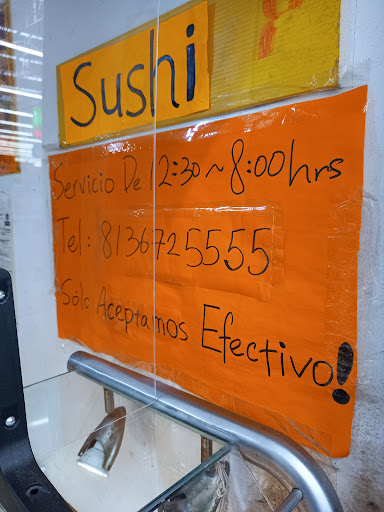 Sushi
Servicio De 12:30 ~ 8:00 hrs
Tel: 8136725555
Sólo Aceptamos Efectivo!